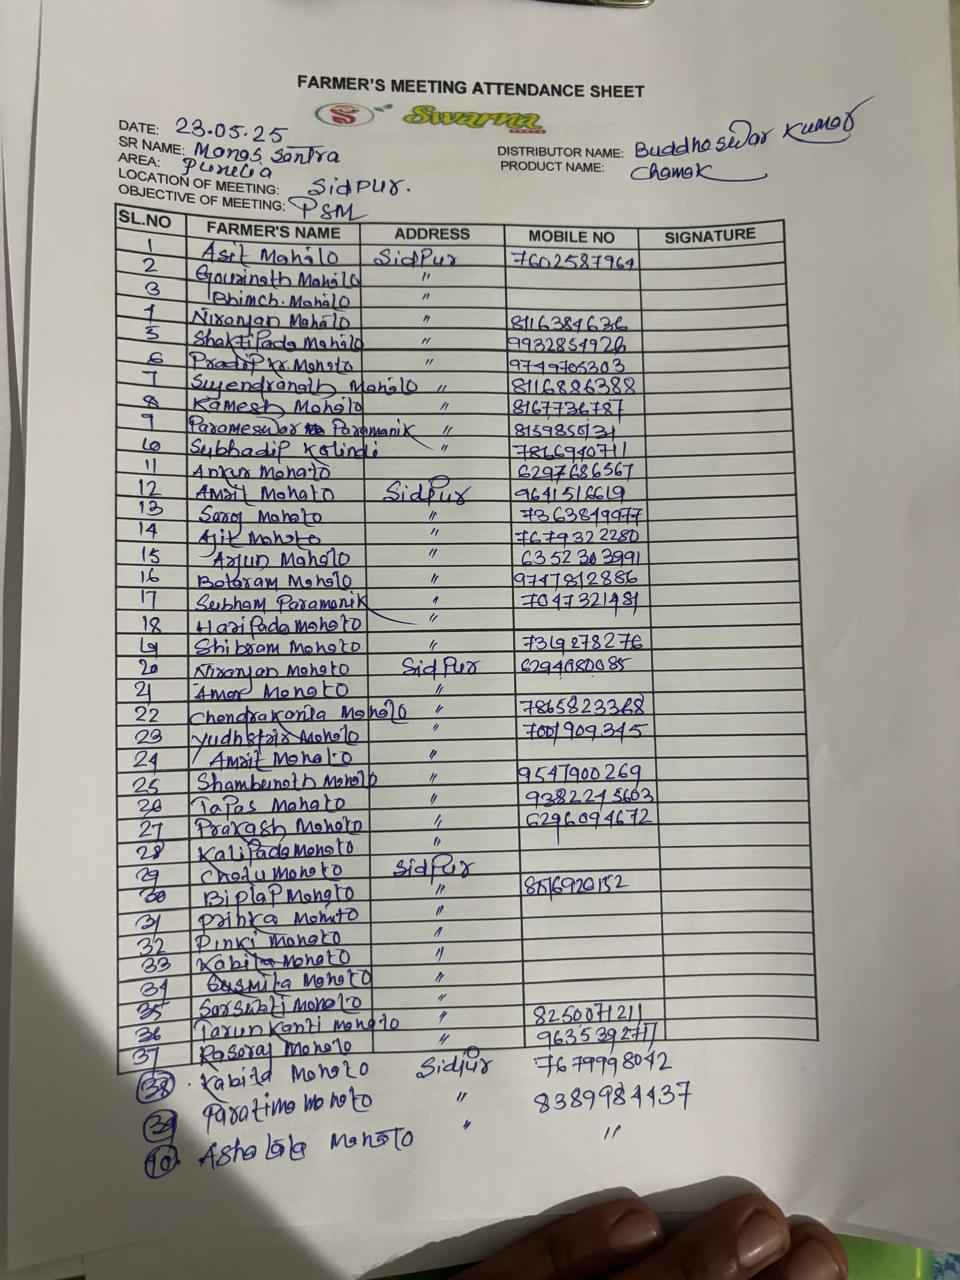 FARMER'S MEETING ATTENDANCE SHEET
S Swarna
DATE: 23.05.25
SR NAME: Manas Santra
AREA: Purulia
LOCATION OF MEETING: Sidpur.
OBJECTIVE OF MEETING: PSM
DISTRIBUTOR NAME: Buddhaswar Kumar
PRODUCT NAME: Chamak
SL.NO FARMER'S NAME ADDRESS MOBILE NO SIGNATURE
1 Asit Mahato Sidpur 7602587964
2 Gourinath Mahato "
3 Bhimch. Mahato "
4 Niranjan Mahato " 8116384636
5 Shaktipada Mahato " 9932854926
6 Pradip kr. Mahato " 9749705303
7 Mahato " 8116886388
8 Kamesh Mahato " 8167736787
9 Parameswar Paramanik "
10 Subhadip Kalindi " 7866940711
11 Ankur Mahato 6297686567
12 Amrit Mahato Sidpur 9641516619
13 Saroj Mahato " 7363849977
14 Ajit Mahato " 7679322280
15 Arjun Mahato " 6352303991
16 Balaram Mahato " 9747812886
17 Subham Paramanik " 7047321481
18 Haripada Mahato "
19 Shibram Mahato " 7319278276
20 Niranjan Mahato Sidpur 6294080085
21 Amar Mahato "
22 Chandrakanta Mahato " 7865823368
23 Mahato " 7001909345
24 Amrit Mahato "
25 Shambunath Mahato " 9547900269
26 Tapas Mahato " 9382245603
27 Prakash Mahato " 6296094672
28 Kalipada Mahato "
29 Chotu Mahato Sidpur
30 Biplap Mahato "
31 Mahato "
32 Pinki Mahato "
33 Kabita Mahato "
34 Susmita Mahato "
35 Mahato "
36 Tarun Kanti Mahato " 8250071211
37 Rasaraj Mahato " 9635392711
38. Kabita Mahato Sidpur 7679998042
39 Mahato " 8389984437
40. Mahato " "